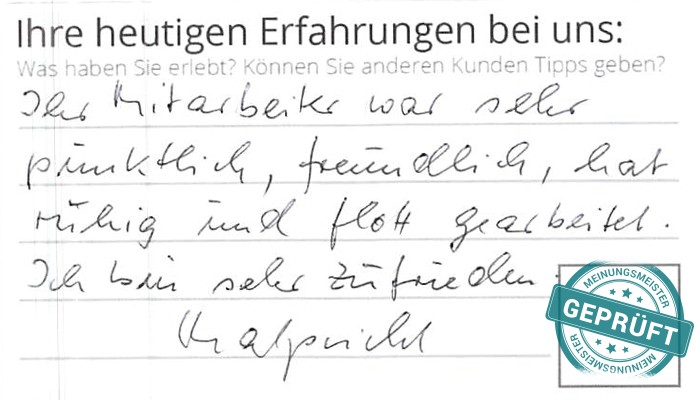 Ihre heutigen Erfahrungen bei uns:
Was haben Sie erlebt? Können Sie anderen Kunden Tipps geben?
Ihr Mitarbeiter war sehr
pünktlich, freundlich, hat
ruhig und flott gearbeitet.
Ich bin sehr zufrieden.
MEINUNGSMEISTER
GEPRÜFT
MEINUNGSMEISTER